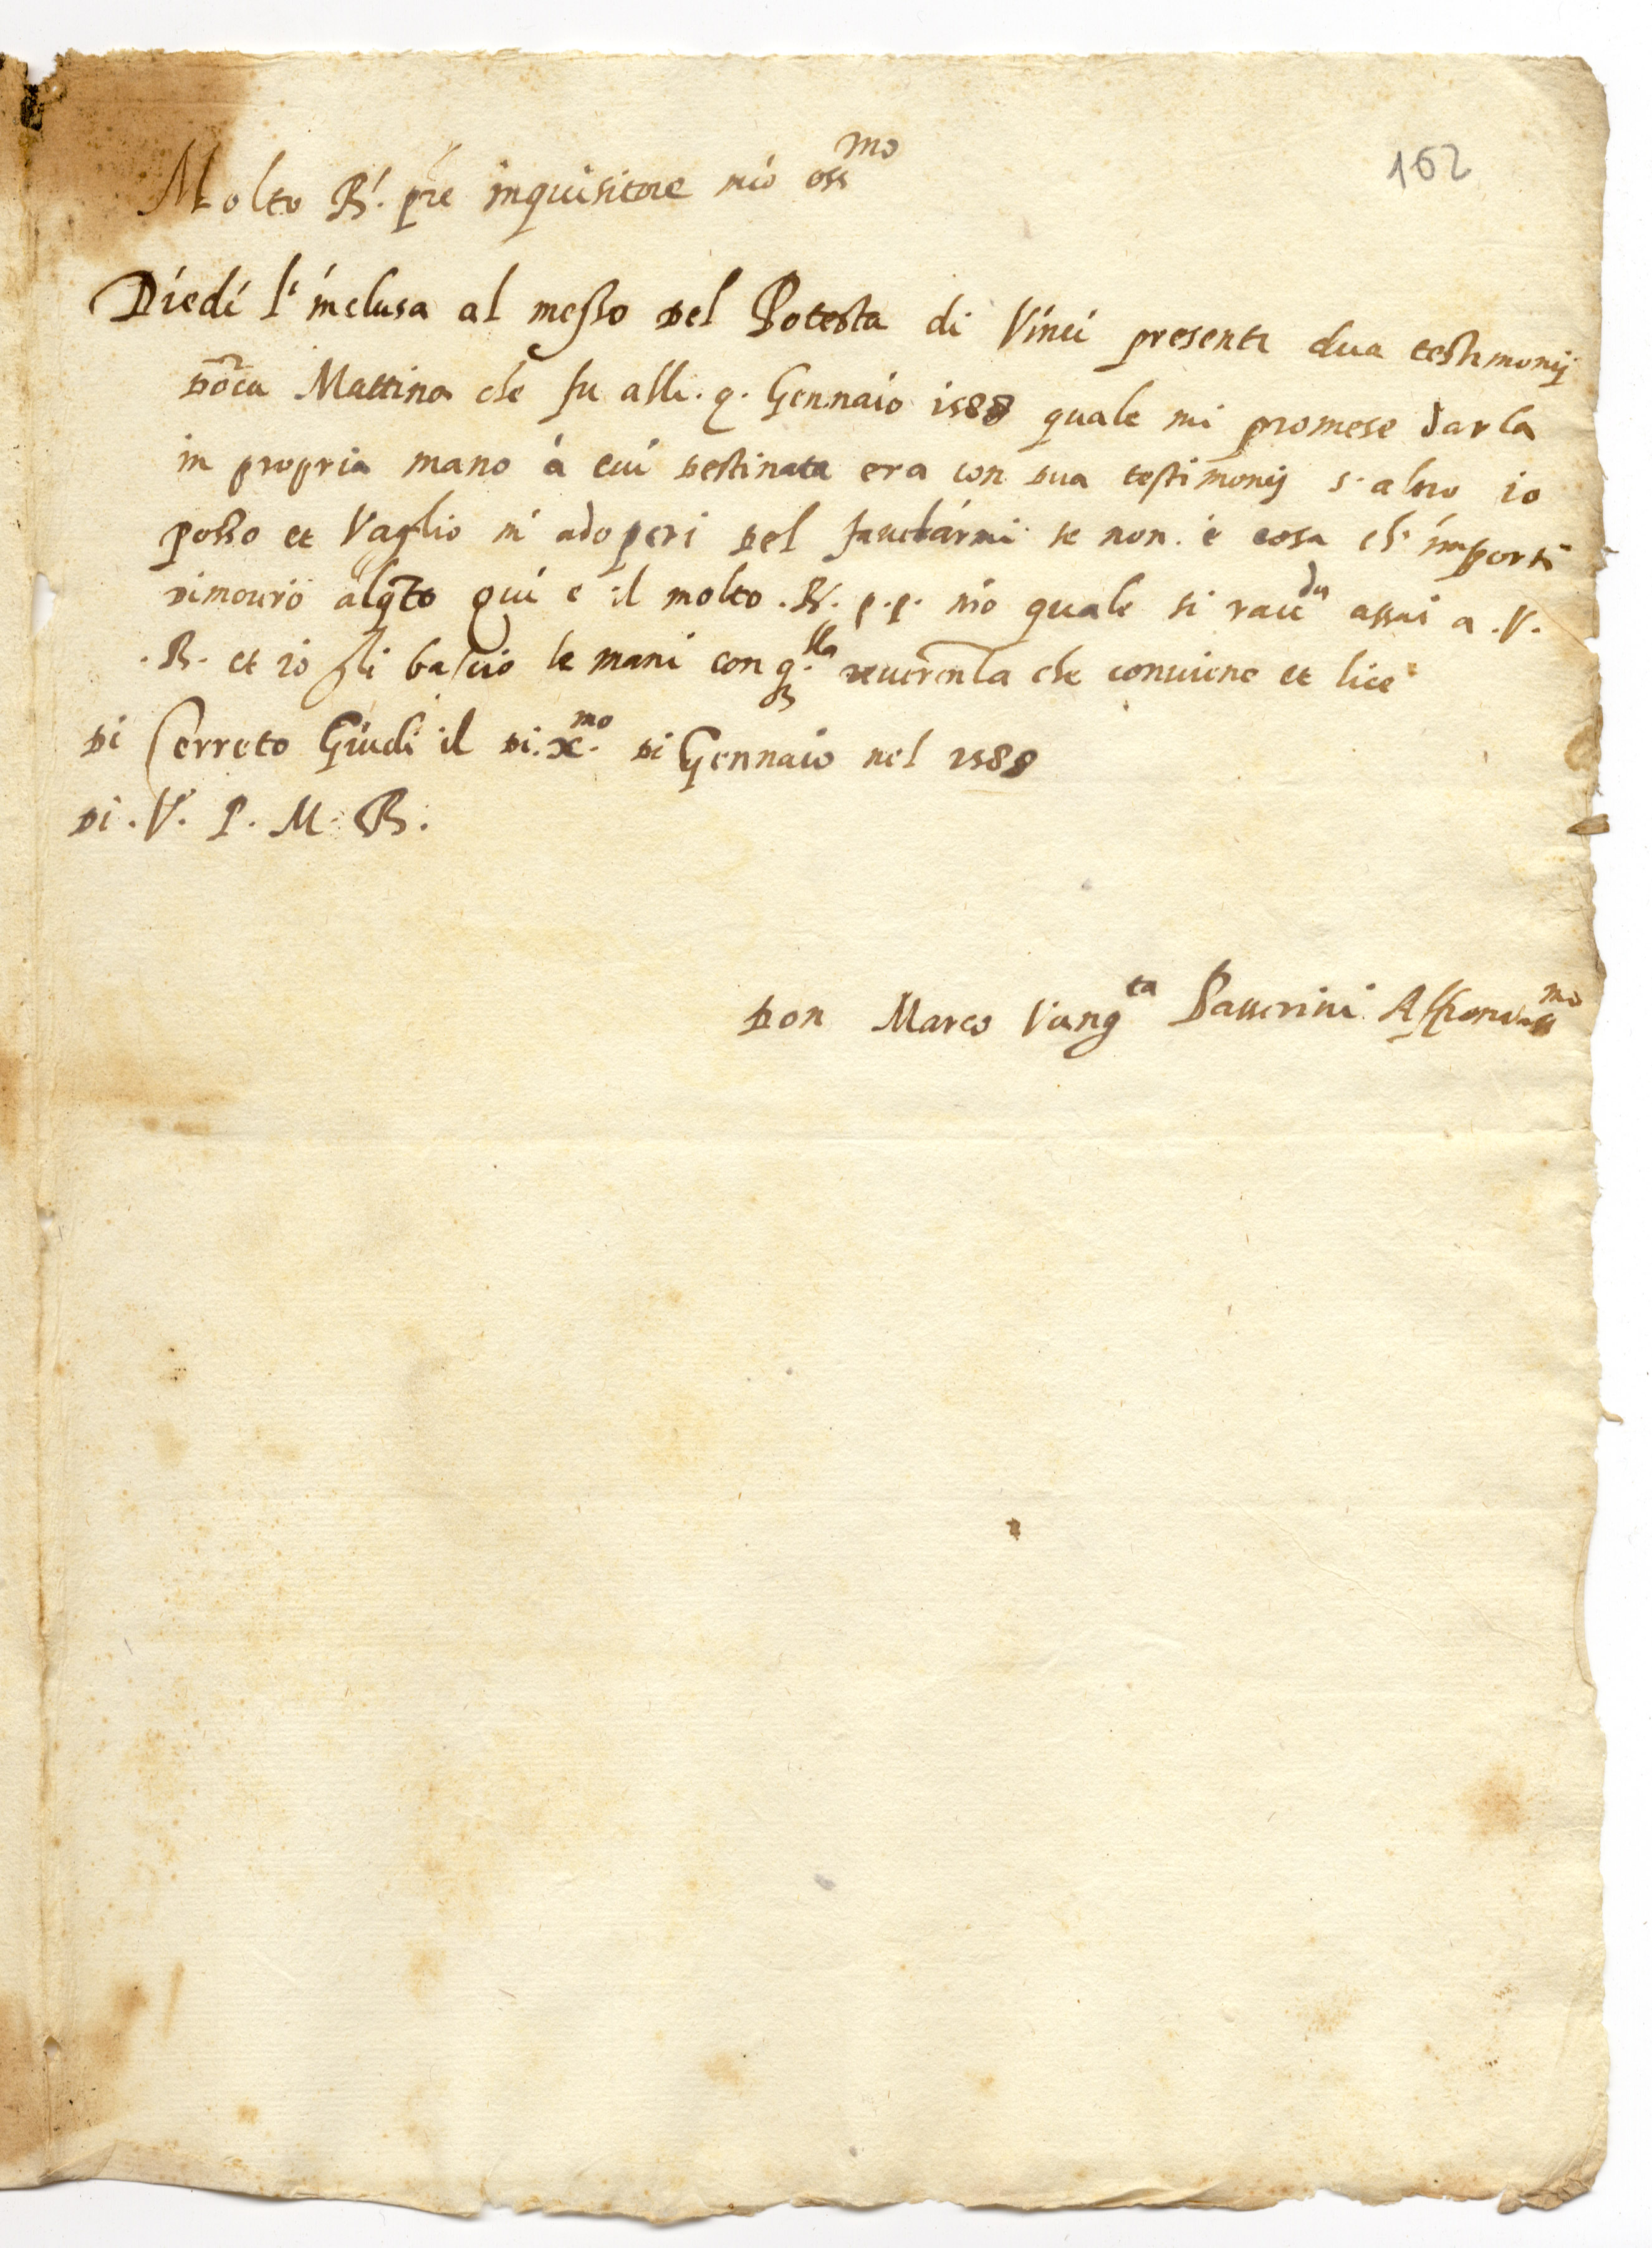 162
Molto R. pre inquisitore mio oss.mo
Diedi l'inclusa al messo del Potesta di Vinci presenti dua testimonij
doca Mattina che fu alli .9. Gennaio 1588 quale mi promese darla
in propria mano à cui destinata era con dua testimonij s'altro io
posso et Vaglio m'adoperi del
se non è cosa ch'importi
dimorerò alqto qui è il molto .R. p.p. mio quale si racda assai a .V.
.R. et io gli bascio le mani con q.lla reverenta che conviene et lice
di Cerreto Guidi il di .x.mo di Gennaio nel 1588
di .V. P. M. R.
Don Marco Vangta Passerini Affetionatissmo